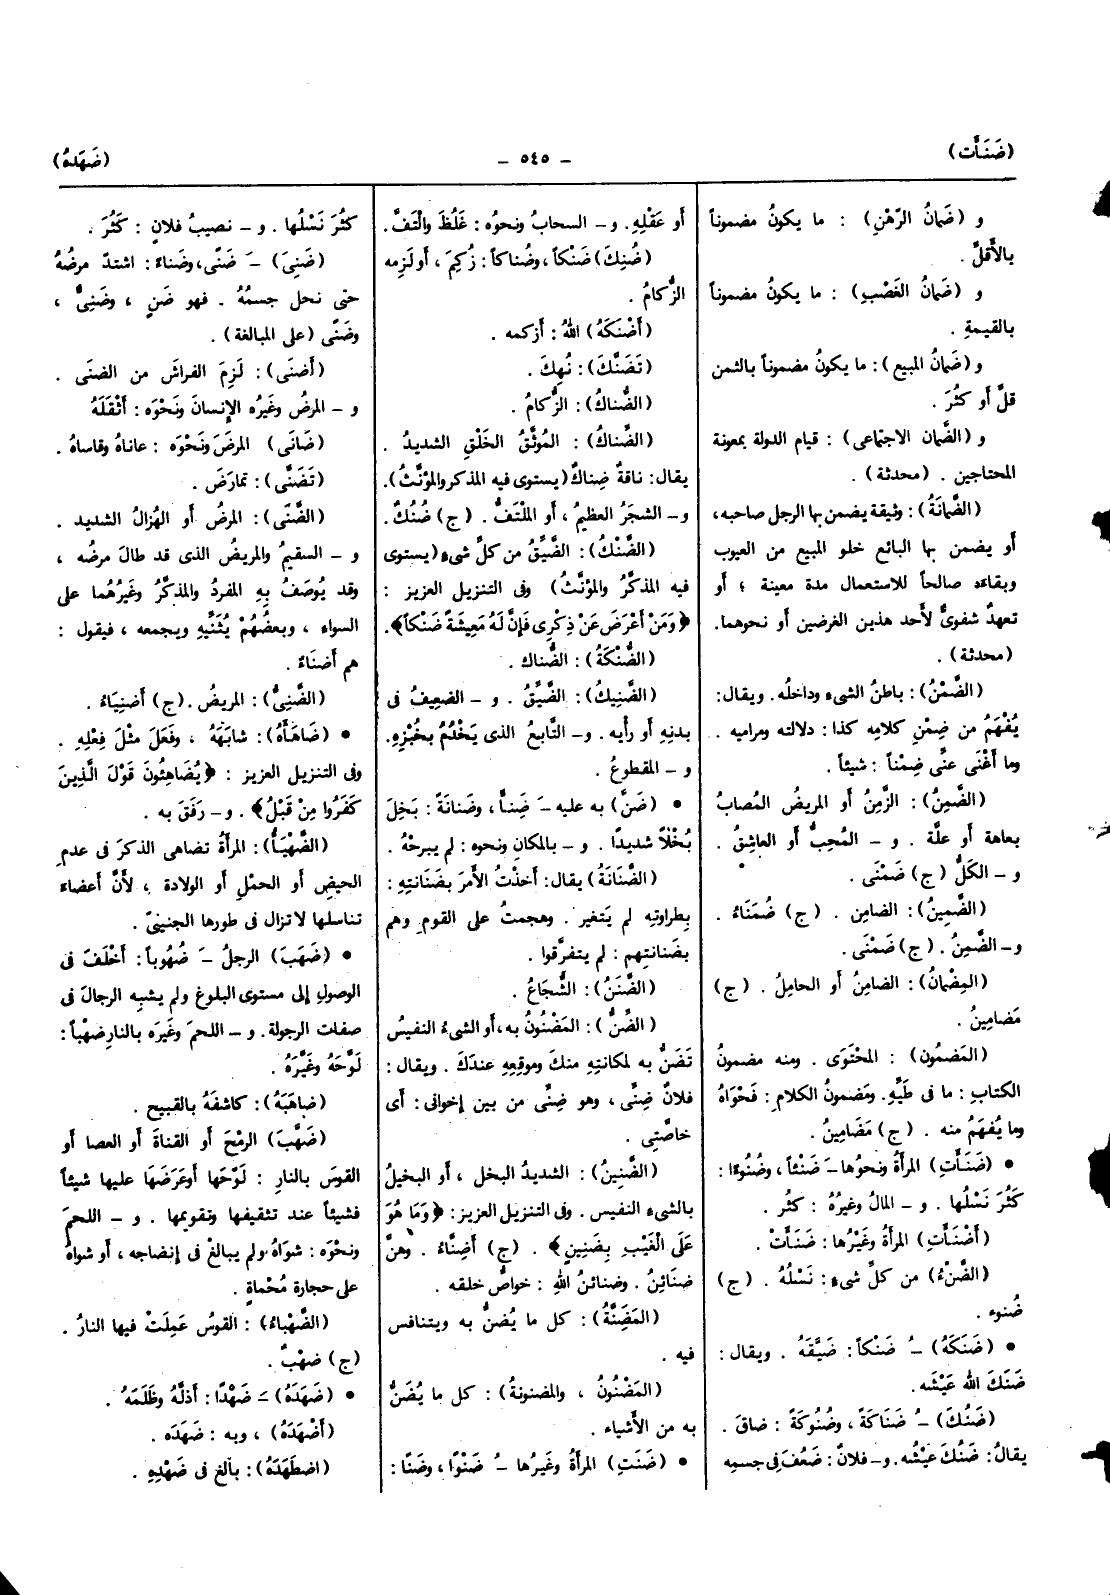 (ضَنَأَت)
– ٥٤٥ –
(ضَهَدَهُ)
و (ضَمانُ الرّهْنِ) : ما يكونُ مضموناً
بالأَقلِّ .
و (ضَمانُ الغَصْبِ) : ما يكونُ مضموناً
بالقيمةِ .
و (ضَمانُ المبيع) : ما يكونُ مضموناً بالثمن
قلَّ أَو كثُرَ .
و (الضَّمان الاجتماعى) : قيام الدولة بمعونة
المحتاجين . (محدثة) .
(الضَّمانَةُ) : وثيقة يضمن بها الرجل صاحبه ،
أَو يضمن بها البائع خلو المبيع من العيوب
وبقاءه صالحاً للاستعمال مدة معينة ؛ أَو
تعهدٌ شفوىٌّ لأَحد هذين الغرضين أَو نحوهما.
(محدثة) .
(الضِّمْنُ) : باطنُ الشىء وداخلُه. ويقال:
يُفْهَمُ من ضِمْنِ كلامِه كذا : دلالته ومراميه .
وما أَغْنَى عنِّى ضِمْناً : شيئاً .
(الضَّمِنُ) : الزَّمِنُ أَو المريضُ المُصابُ
بعاهة أَو علَّة . و – المُحِبُّ أَو العاشِقُ .
و – الكَلُّ (ج) ضَمْنَى .
(الضَّمِينُ) : الضامِن . (ج) ضُمَنَاءُ .
و– الضَّمِنُ . (ج) ضَمْنَى.
(المِضْمانُ) : الضامِنُ أَو الحامِلُ . (ج)
مَضامِينُ .
(المَضمُون) : المحْتَوَى . ومنه مضمونُ
الكتابِ : ما فى طَيِّهِ. ومَضمونُ الكلامِ : فَحْوَاهُ
وما يُفهَمُ منه . (ج) مَضَامِينُ .
• (ضَنَأَتِ) المرأَةُ ونحوُها–َ ضَنْئاً ، وضُنُوءًا :
كَثُرَ نَسْلُها . و – المالُ وغيرُهُ : كثُر .
(أَضْنَأَتِ) المرأَةُ وغَيْرُها : ضَنَأَتْ .
(الضَّنْءُ) من كلِّ شىءٍ : نَسْلُهُ . (ج)
ضُنوء .
• (ضَنَكَهُ) –ُ ضَنْكاً : ضَيَّقَهُ . ويقال :
ضَنَكَ الله عَيْشَه.
(ضَنُكَ) –ُ ضَنَاكَةً ، وضُنُوكَةً : ضاقَ .
يقالُ: ضَنُكَ عَيْشُه . و– فلانٌ: ضَعُفَ فى جسمِه
أَو عَقْلِهِ. و – السحابُ ونحوُه : غَلُظَ والْتَفَّ.
(ضُنِكَ) ضَنْكاً ، وضُناكاً : زُكِمَ ، أَو لَزِمه
الزُّكامُ .
(أَضْنَكَهُ) اللهُ : أَزكمه .
(تَضَنَّكَ) : نُهِكَ .
(الضُّناكُ) : الزُّكامُ .
(الضِّناكُ) : المُوَثَّقُ الخَلْقِ الشديدُ .
يقال: ناقةٌ ضِناكٌ (يستوى فيه المذكر والمؤنَّثُ).
و – الشجَرُ العظيمُ ، أَو الملْتَفُّ . (ج) ضُنُكٌ.
(الضَّنْكُ) : الضَّيِّقُ من كلِّ شىءٍ (يستوى
فيه المذكَّرُ والمؤنَّثُ) وفى التنزيل العزيز :
﴿وَمَنْ أَعْرَضَ عَنْ ذِكْرِى فَإِنَّ لَهُ مَعِيشَةً ضَنْكاً﴾.
(الضُّنْكَةُ) : الضُّناك .
(الضَّنِيكُ) : الضَّيِّقُ . و – الضعِيفُ فى
بدنِهِ أَو رأْيه. و – التَّابعُ الذى يَخْدُمُ بخُبْزِهِ.
و – المقطوعُ .
• (ضَنَّ) به عليه –َ ضَِنًّا ، وضَنانَةً : بَخِلَ
بُخْلاً شديدًا . و – بالمكانِ ونحوه : لم يبرحْهُ .
(الضَّنَانَةُ) يقال: أَخذْتُ الأَمرَ بضَنَانتِهِ :
بِطراوتِه لم يَتغير . وهجمتُ على القومِ وهم
بضَنانتِهِم : لم يتفرَّقوا .
(الضَّنَنُ) : الشُّجَاعُ .
(الضِّنُّ) : المَضْنُونُ به، أَو الشىءُ النفيسُ
تَضَنُّ به لمكانتِهِ منكَ وموقِعِهِ عندَكَ . ويقال :
فلانٌ ضِنِّى ، وهو ضِنِّى من بين إخوانى : أَى
خاصَّتِى .
(الضَّنِينُ) : الشديدُ البخل ، أَو البخيلُ
بالشىء النفيس . وفى التنزيل العزيز : ﴿وَمَا هُوَ
عَلَى الْغَيْبِ بِضَنِينٍ﴾ . (ج) أَضِنَّاءُ . وهنَّ
ضنائِنُ . وضنائنُ اللهِ : خواصُّ خلقه .
(المَضِنَّةُ) : كل ما يُضنُّ به ويتنافس
فيه .
(المَضْنُونُ ، والمضنونةُ) : كل ما يُضَنُّ
به من الأَشياء .
• (ضَنَتِ) المرأَةُ وغيرُها –ُ ضَنْوًا ، وضَنًا :
كثُرَ نَسْلُها . و – نصيبُ فلانٍ : كَثُرَ .
(ضَنِىَ) –َ ضَنًى، وضَناءً : اشتدّ مرضُهُ
حتى نحل جسمُهُ . فهو ضَنٍ ، وضَنِىٌّ ،
وضَنًى (على المبالغة) .
(أَضنَى) : لَزِمَ الفراشَ من الضنَى .
و – المرضُ وغَيرُه الإنسانَ ونَحْوَه : أَثْقَلَهُ
(ضَانَى) المرضَ ونَحْوَه : عاناهُ وقاساهُ .
(تَضَنَّى) : تمارَضَ .
(الضَّنَى) : المرضُ أَو الهُزالُ الشديد .
و – السقيمُ والمريضُ الذى قد طالَ مرضُه ،
وقد يُوصَفُ بِهِ المفردُ والمذكَّرُ وغيرُهُما على
السواء ، وبعضُهُمْ يُثَنِّيهِ ويجمعه ، فيقول :
هم أَضنَاءُ .
(الضَّنِىُّ) : المريضُ . (ج) أَضنِيَاءُ .
• (ضَاهَأَهُ) : شابَهَهُ ، وفَعَلَ مثْلَ فِعْلِهِ .
وفى التنزيل العزيز : ﴿يُضَاهِئُونَ قَوْلَ الَّذِينَ
كَفَرُوا مِنْ قَبْلُ﴾ . و – رَفَقَ به .
(الضَّهْيَأُ) : المرأَةُ تضاهى الذكرَ فى عدمِ
الحيضِ أَو الحمْلِ أَو الولادة ، لأَنَّ أعضاءَ
تناسلها لا تزال فى طورها الجنينىّ .
• (ضَهَبَ) الرجلُ –َ ضُهُوباً : أَخْلَفَ فى
الوصولِ إلى مستوى البلوغ ولم يشبِه الرجالَ فى
صفات الرجولة. و – اللحمَ وغَيرَه بالنارِ ضهْباً :
لَوَّحَهُ وغَيَّرَهُ .
(ضاهَبَهُ) : كاشفَهُ بالقبيح .
(ضَهَّبَ) الرمْحَ أَو القناةَ أَو العصا أَو
القوسَ بالنارِ : لَوَّحَها أَوعَرَضَها عليها شيئاً
فشيئاً عند تثقيفها وتقويمها . و – اللحمَ
ونحوَه : شوَاهُ ولم يبالغ فى إنضاجه ، أَو شواهُ
على حجارة مُحْماةٍ .
(الضَّهْباءُ) : القوسُ عَمِلَتْ فيها النارُ .
(ج) ضهْبٌ .
• (ضَهَدَهُ) –َ ضَهْدًا : أَذلَّهُ وظَلَمَهُ .
(أَضْهَدَهُ) ، وبه : ضهَدَه .
(اضطَهَدَهُ) : بالغ فى ضَهْدِهِ .